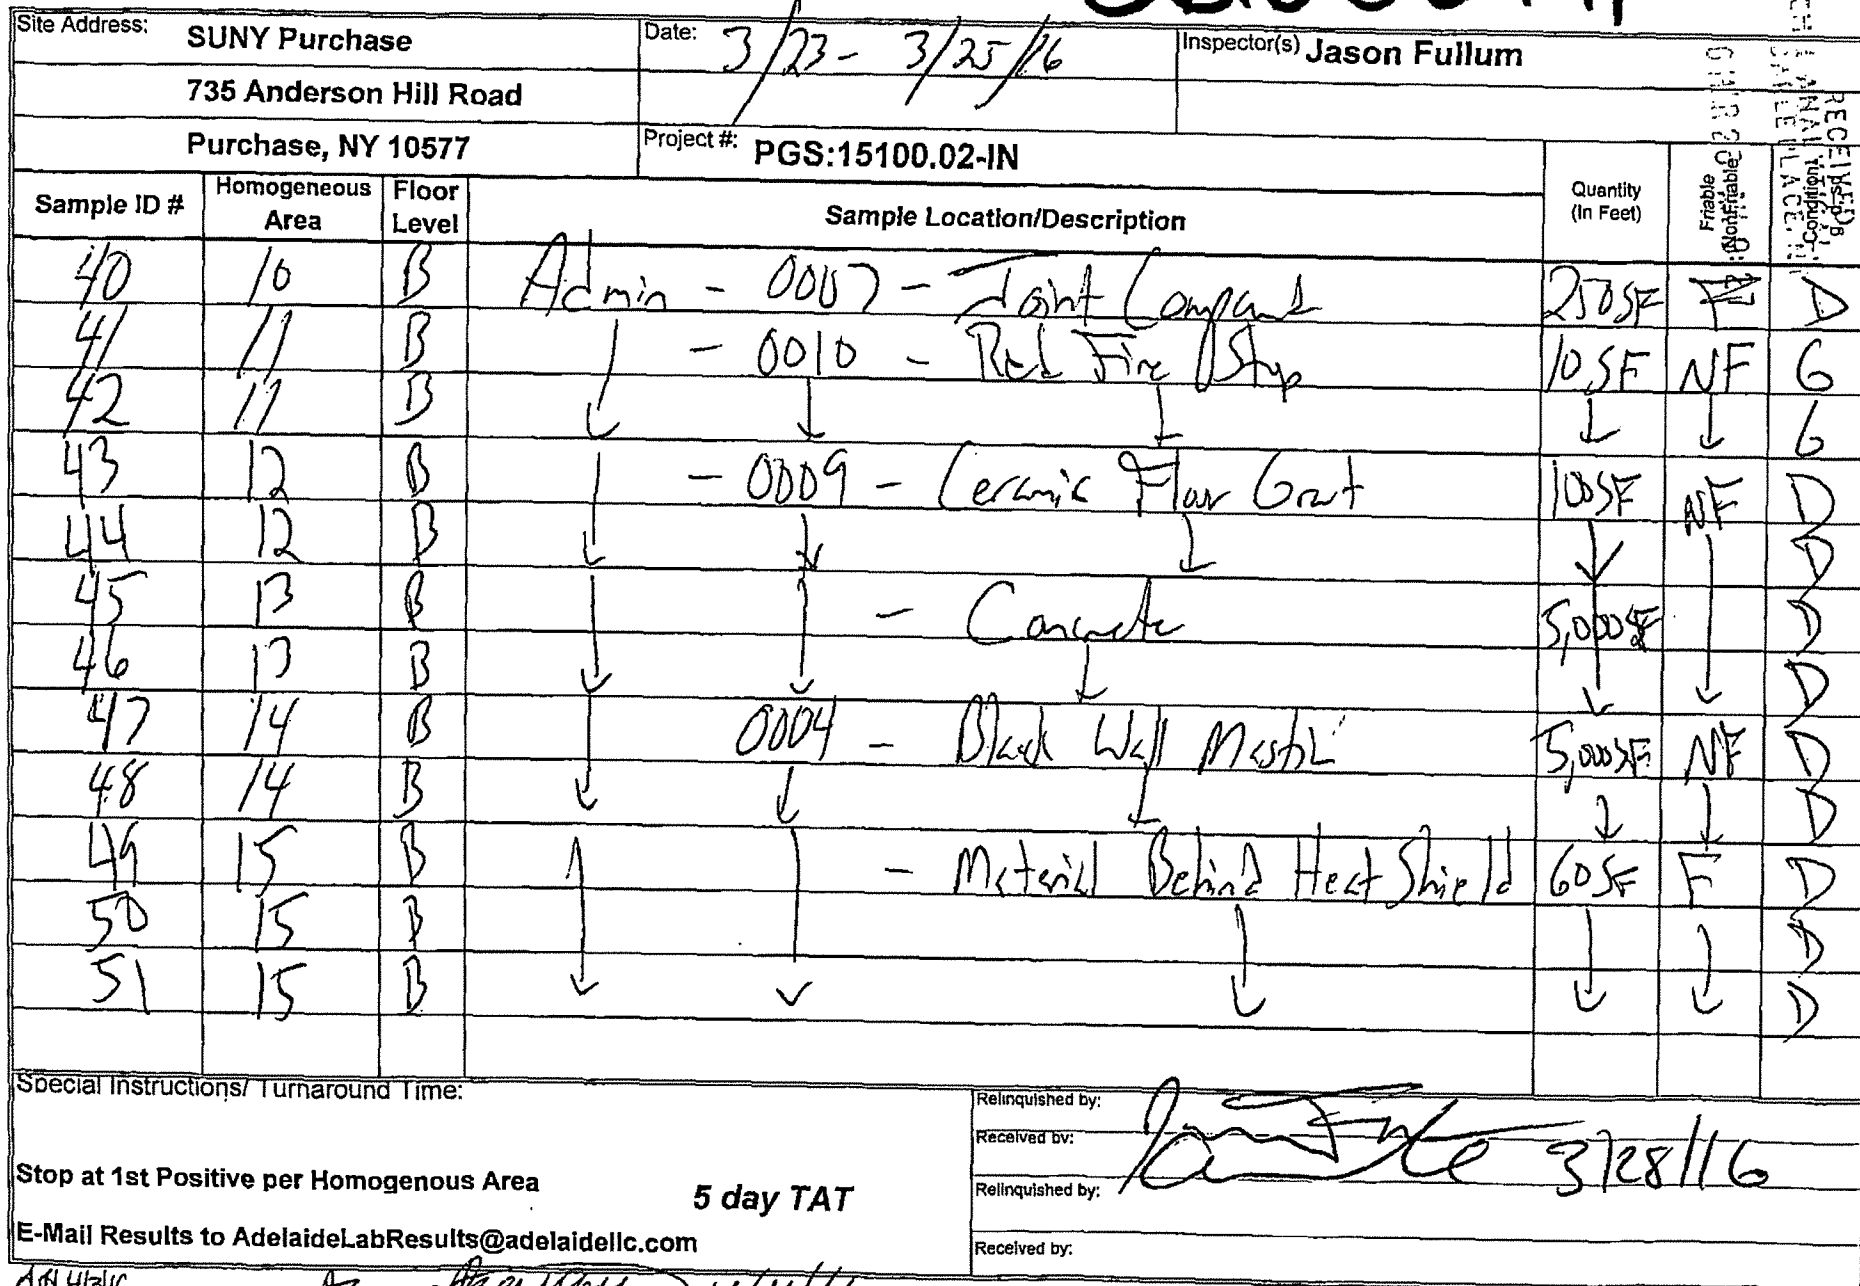 Site Address: SUNY Purchase Date: 3/23 - 3/25/16 Inspector(s) Jason Fullum
735 Anderson Hill Road
Purchase, NY 10577 Project #: PGS:15100.02-IN
Sample ID # Homogeneous Area Floor Level Sample Location/Description Quantity (In Feet) Friable NonFriable Condition
40 10 B Admin - 0007 - Joint Compound 250SF F D
41 11 B ↓ - 0010 - Red Fire Stop 10SF NF G
42 11 B ↓ ↓ ↓ ↓ G
43 12 B - 0009 - Ceramic Floor Grout 100SF NF D
44 12 B ↓ ↓ ↓ ↓ D
45 13 B - Concrete 5,000SF D
46 13 B ↓ ↓ ↓ ↓ ↓ D
47 14 B 0004 - Black Wall Mastic 5,000SF NF D
48 14 B ↓ ↓ ↓ ↓ ↓ D
49 15 B - Material Behind Heat Shield 60SF F D
50 15 B D
51 15 B ↓ ↓ ↓ ↓ ↓ D
Special Instructions/ Turnaround Time:
Stop at 1st Positive per Homogenous Area
5 day TAT
E-Mail Results to AdelaideLabResults@adelaidellc.com
Relinquished by:
Received by: 3/28/16
Relinquished by:
Received by: